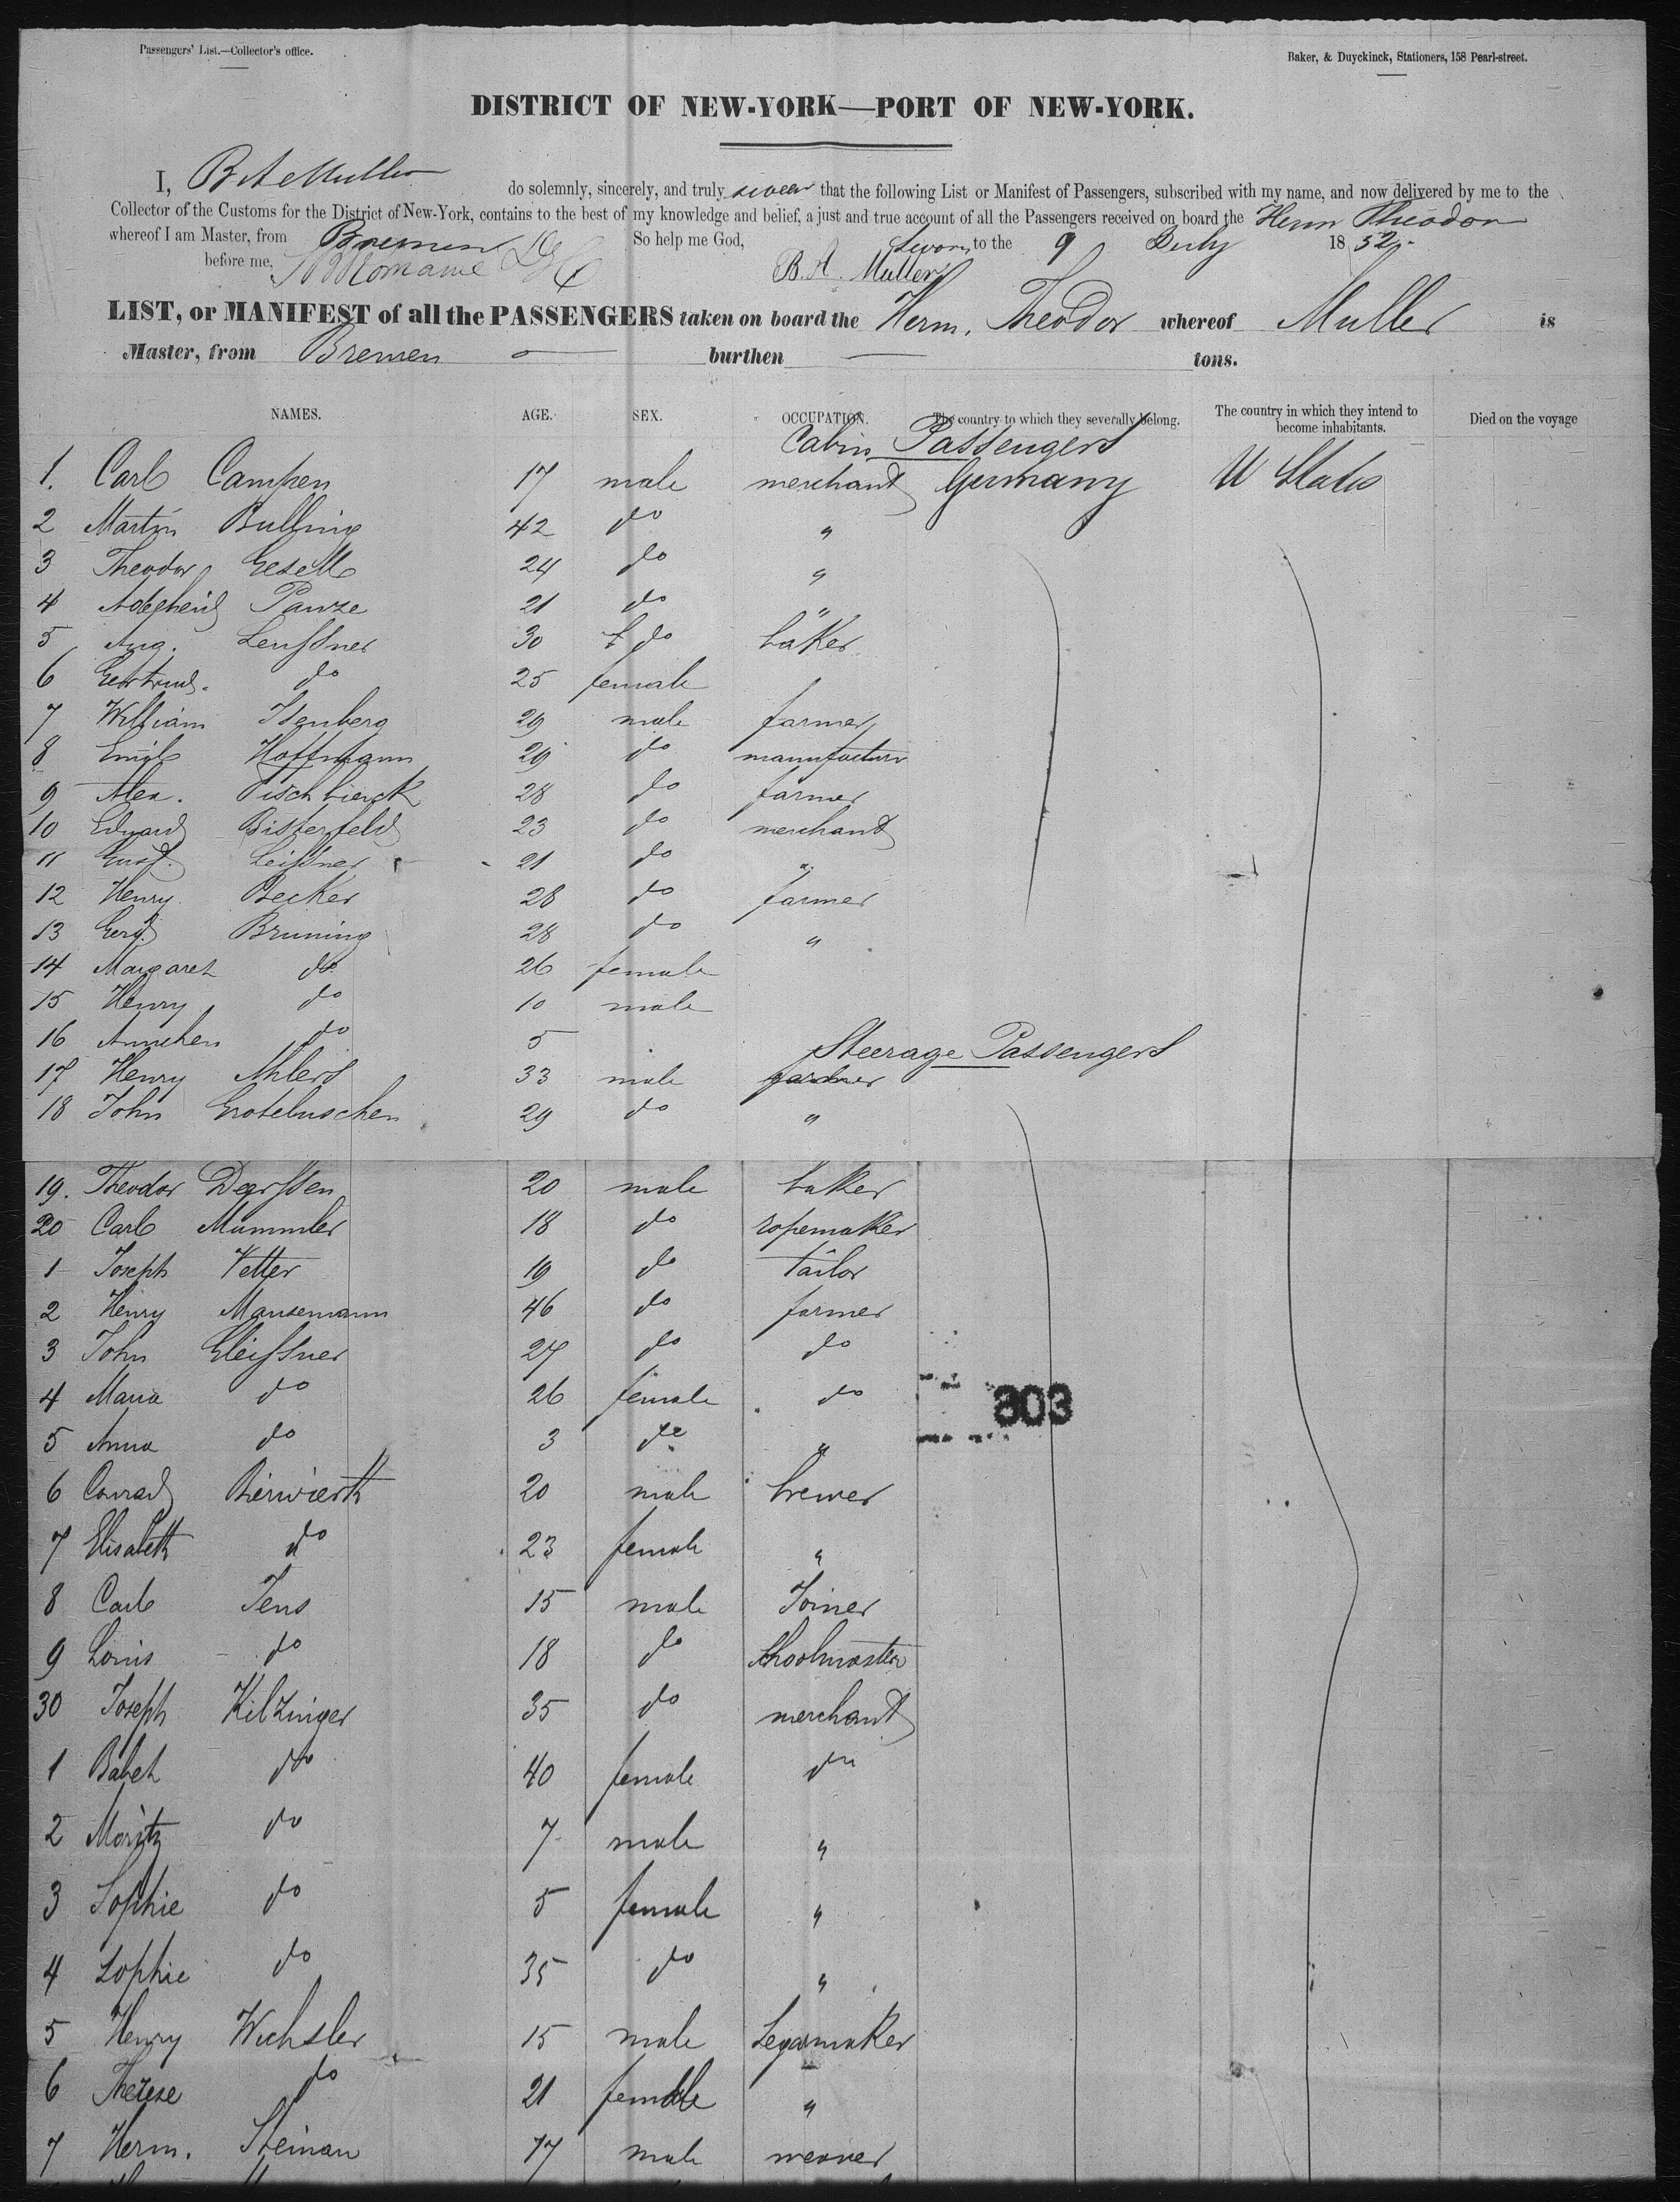 Passengers' List.—Collector's office.
Baker, & Duyckinck, Stationers, 158 Pearl-street.
DISTRICT OF NEW-YORK—PORT OF NEW-YORK.
I, B A Muller do solemnly, sincerely, and truly swear that the following List or Manifest of Passengers, subscribed with my name, and now delivered by me to the
Collector of the Customs for the District of New-York, contains to the best of my knowledge and belief, a just and true account of all the Passengers received on board the Herm Theodor
whereof I am Master, from Bremen So help me God, Sworn to the 9 July 1852.
before me, B. A. Muller
LIST, or MANIFEST of all the PASSENGERS taken on board the Herm. Theodor whereof Muller is
Master, from Bremen burthen tons.
NAMES. AGE. SEX. OCCUPATION. The country to which they severally belong. The country in which they intend to become inhabitants. Died on the voyage
Cabin Passengers
1. Carl Campen 17 male merchant Germany U States
2 Martin Bulling 42 do "
3 Theodor Gesell 24 do "
4 Pauze 21 do "
5 Aug. Leussner 30 do baker
6 Gertrud. do 25 female
7 William Isenberg 29 male farmer
8 Emil Hoffmann 29 do manufacturer
9 Alex. Tischbierck 28 do farmer
10 Eduard Bisterfeld 23 do merchant
11 Gust. Leissner 21 do "
12 Henry Becker 28 do farmer
13 Gerd Bruning 28 do "
14 Margaret do 26 female
15 Henry do 10 male
16 Annchen do 5
Steerage Passengers
17 Henry Ahlers 33 male gardner
18 John Grotebuschen 29 do "
19. Theodor Dearssen 20 male baker
20 Carl Mummler 18 do ropemaker
1 Joseph Vetter 19 do tailor
2 Henry Mansemann 46 do farmer
3 John Gleissner 27 do do
4 Maria do 26 female do
303
5 Anna do 3 do "
6 Conrad Bierwierth 20 male brewer
7 Elisabeth do 23 female "
8 Carl Jens 15 male Joiner
9 Louis do 18 do schoolmaster
30 Joseph Kilzinger 35 do merchant
1 Babet do 40 female do
2 Moritz do 7 male "
3 Sophie do 5 female "
4 Sophie do 35 do "
5 Henry Wechsler 15 male Segarmaker
6 Therese do 21 female "
7 Herm. Steinau 17 male weaver